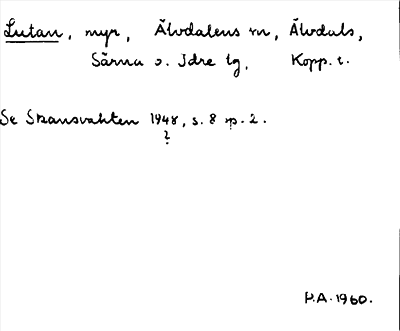 Lutan, myr, Älvdalens sn, Älvdals,
Särna o. Idre tg, Kopp. l.
Se Skansvakten 1948, s. 8 sp. 2.
?
P.A. 1960.